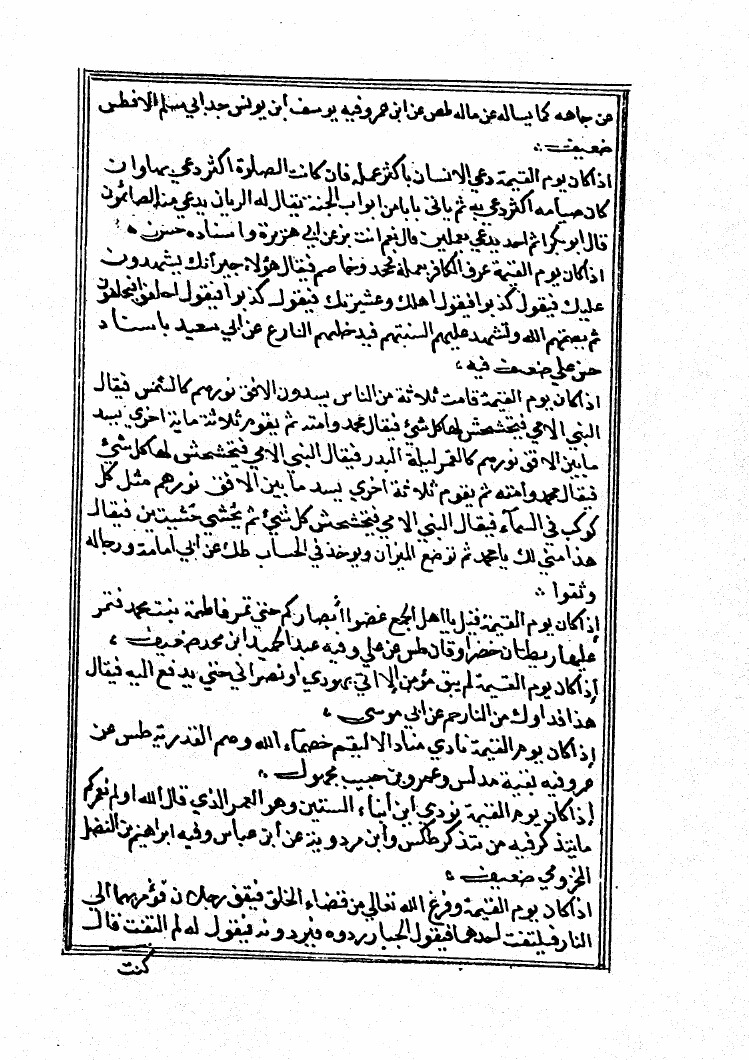 عن جاهه كما يساله عن ماله طص عن ابن عمر وفيه يوسف ابن يونس جد ابي مسلم الافطس
ضعيف ؞
اذا كان يوم القيمة دعي الانسان باكثر عمله فان كانت الصلوة اكثر دعي بها وان
كان صيامه اكثر دعي به ثم ياتي بابا من ابواب الجنة يقال له الريان يدعي منه الصائمون
قال ابو بكر اثم احد يدعي بعملين قال نعم انت بز عن ابي هريرة واسناده حسن
اذا كان يوم القيمة عرف الكافر بعمله فجحد وخاصم فيقال هؤلاء جيرانك يشهدون
عليك فيقول كذبوا فيقول اهلك وعشيرتك فيقول كذبوا فيقول احلفوا فيحلفون
ثم يصمتهم الله وتشهد عليهم السنتهم فيدخلهم النار ع عن ابي سعيد باسناد
حسن علي ضعف فيه
اذا كان يوم القيمة قامت ثلاثة من الناس يسدون الافق نورهم كالشمس فيقال
النبي الامي فيتحشحش لها كل شئ فيقال محمد وامته ثم يقوم ثلاثة ماية اخري يسد
ما بين الافق نورهم كالقمر ليلة البدر فيقال النبي الامي فيتحشحش لها كل شئ
فيقال محمد وامته ثم يقوم ثلاثة اخري يسد ما بين الافق نورهم مثل كل
كوكب في السمآء فيقال النبي الامي فيتحشحش كل شئ ثم يحثي حثيتين فيقال
هذا مني لك يا محمد ثم توضع الميزان ويوخذ في الحساب طك عن ابي امامة ورجاله
وثقوا ؞
إذا كان يوم القيمة قيل يا اهل الجمع غضوا أبصاركم حتي تمر فاطمة بنت محمد فتمر
عليها ريطتان خضراوتان طس عن علي وفيه عبد الحميد ابن محمد ضعيف
إذا كان يوم القيمة لم يبق مؤمن إلا اتي بيهودي او نصراني حتي يدفع اليه فيقال
هذا فداوك من النار حم عن ابي موسي
إذا كان يوم القيمة نادي مناد الا ليقم خصمآء الله وهم القدرية طس عن
عمر وفيه بقية مدلس وعمرو بن حبيب مجهول
إذا كان يوم القيمة نودي اين أبناء الستين وهو العمر الذي قال الله اولم نعمركم
ما يتذكر فيه من تذكر طكس وابن مردوية عن ابن عباس وفيه ابراهيم بن الفضل
المخزومي ضعيف
اذا كان يوم القيمة وفرغ الله تعالي من قضاء الخلق فيبقي رجلان فيؤمر بهما الي
النار فيلتفت احدهما فيقول الجبار ردوه فيردونه فيقول له لم التفت قال
كنت